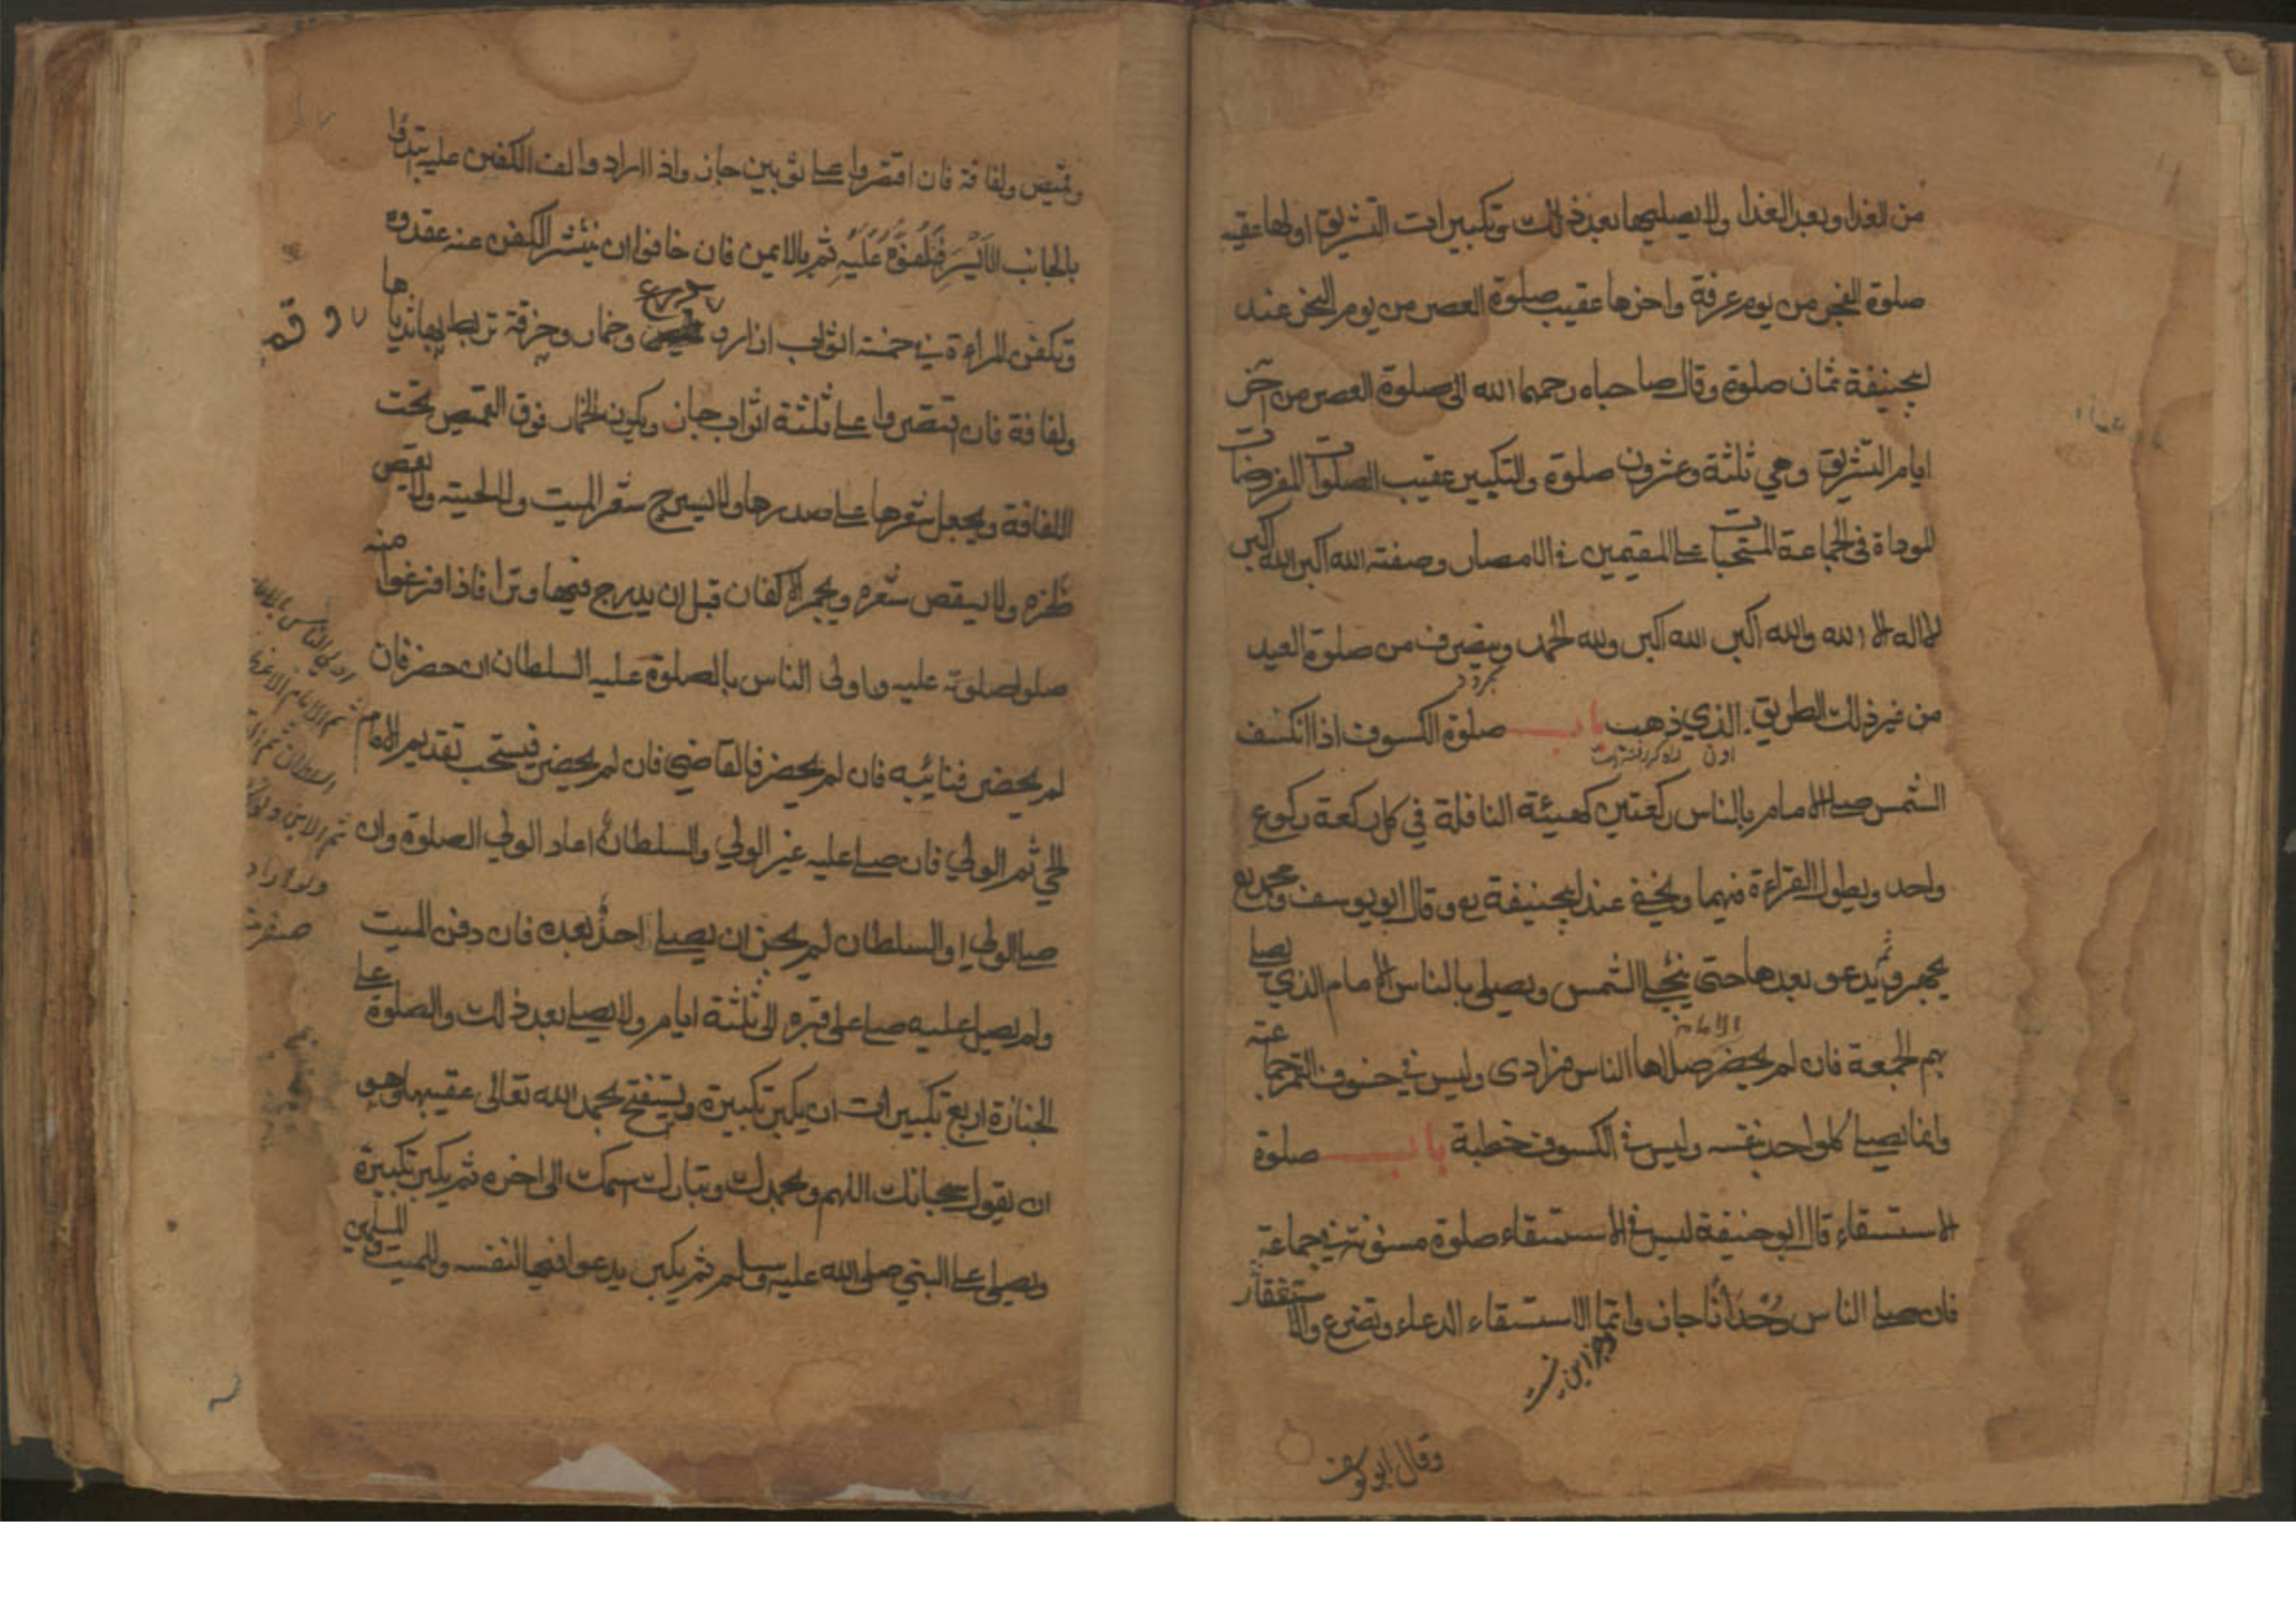 من الغدا وبعد الغدا ولا يصليها بعد ذلك وتكبيرات التشريق اولها عقيب
صلوة الفجر من يوم عرفة واخرها عقيب صلوة العصر من يوم النحر عند
ابيحنيفة ثمان صلوة وقال صاحباه رحمهما الله الى صلوة العصر من آخر
ايام التشريق وهي ثلثة وعشرون صلوة والتكبير عقيب الصلوات المفروضات
الموداة فى الجماعة المستحبات على المقيمين في الامصار وصفته الله اكبر الله اكبر
لا اله الا الله والله اكبر الله اكبر ولله الحمد وينصرف من صلوة العيد
من غير ذلك الطريق الذي ذهب باب صلوة الكسوف اذا انكسف
الشمس صلى الامام بالناس ركعتين كهيئة النافلة في كل ركعة ركوع
واحد ويطول القراءة فيهما ويخفى عند ابيحنيفة رح وقال ابو يوسف ومحمد رح
يجهر ثم يدعو بعدها حتى ينجلى الشمس ويصلى بالناس الامام الذي يصلى
بهم الجمعة فان لم يحضر الامام صلاها الناس فرادى وليس في خسوف القمر جماعة
وانما يصلى كل واحد بنفسه وليس في الكسوف خطبة باب صلوة
الاستسقاء قال ابو حنيفة ليس في الاستسقاء صلوة مسنونة في جماعة
فان صلى الناس وُحْدَانًا جاز وانما الاستسقاء الدعاء وتضرع والاستغفار
وقال ابو يوسف
وقميص ولفافة فان اقتصروا على ثوبين جاز واذا اراد والف الكفن عليه ابتدوا
بالجانب الأَيْسَرِ فَيُلْقُوهُ عَلَيْهِ ثم بالايمن فان خافوا ان ينتشر الكفن عنه عقدوه
وتكفن المراءة في خمسة اثواب ازار و درع وخمار وخرقة تربط بها ثدياها
ولفافة فان اقتصروا على ثلثة اثواب جاز ويكون الخمار فوق القميص تحت
اللفافة ويجعل شعرها على صدرها ولا يسرح شعر الميت ولا لحيته ولا يقص
ظفره ولا يقص شعره ويجمر الاكفان قبل ان يدرج فيها وترا فاذا فرغوا منه
صلوا صلوته عليه واولى الناس بالصلوة عليه السلطان ان حضر فان
لم يحضر فنائبه فان لم يحضر فالقاضي فان لم يحضر فيستحب تقديم الامام
الحي ثم الولي فان صلى عليه غير الولي والسلطان اعاد الولي الصلوة وان
صلى الولي او السلطان لم يجز ان يصلى احدٌ بعده فان دفن الميت
ولم يصل عليه صلى على قبره الى ثلثة ايام ولا يصلى بعد ذلك والصلوة على
الجنازة اربع تكبيرات ان يكبر تكبيرة ويستفتح بحمد الله تعالى عقيبها وهو
ان يقول سبحانك اللهم وبحمدك وتبارك اسمك الى اخره ثم يكبر تكبيرة
ويصلي على النبي صلى الله عليه وسلم ثم يكبر يدعو فيها لنفسه وللميت وللمسلمين